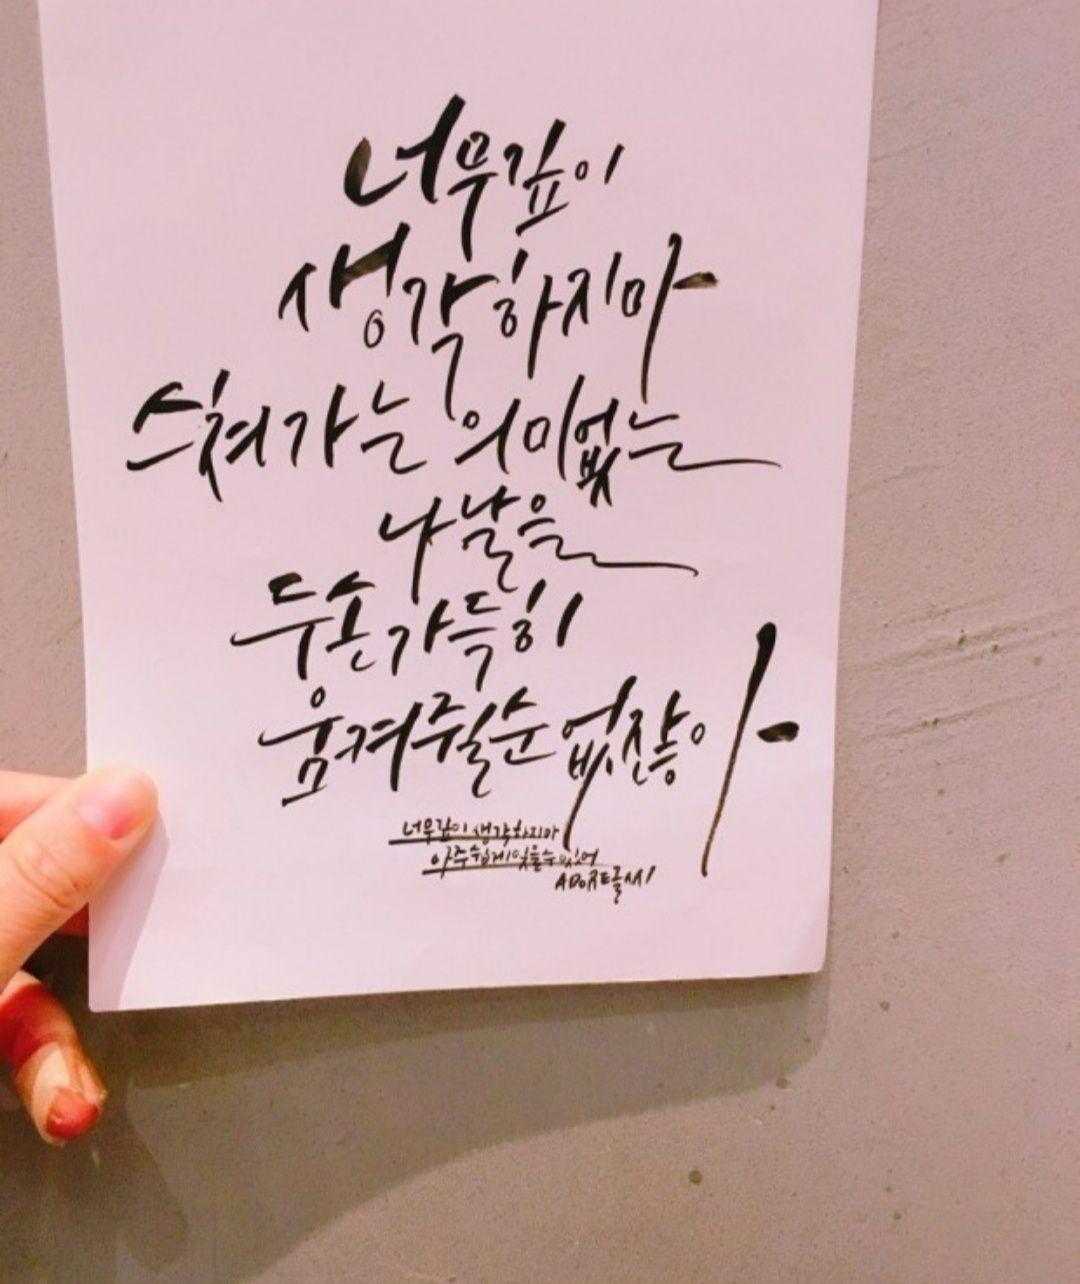 너무 깊이
생각하지마
스쳐가는 의미없는
나날을
두손 가득히
움켜쥘 순 없잖아
너무 깊이 생각하지마
아주 쉽게 잊을 수 있어